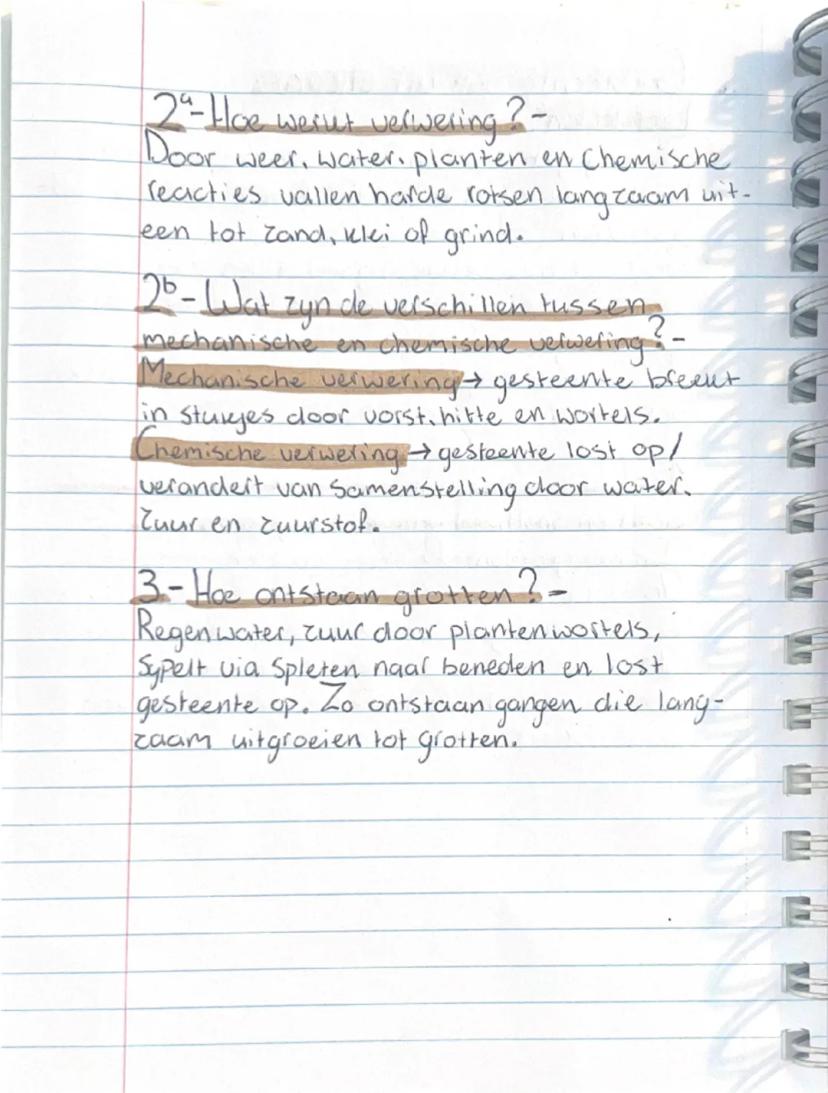 2a - Hoe werkt verwering? -
Door weer, water, planten en Chemische
reacties vallen harde rotsen langzaam uit-
een tot zand, klei of grind.
2b - Wat zyn de verschillen tussen
mechanische en chemische verwering? -
Mechanische verwering → gesteente breekt
in stukjes door vorst, hitte en wortels.
Chemische verwering → gesteente lost op/
verandert van samenstelling door water,
zuur en zuurstof.
3 - Hoe ontstaan grotten? -
Regenwater, zuur door plantenwortels,
Sypelt via Spleten naar beneden en lost
gesteente op. Zo ontstaan gangen die lang-
zaam uitgroeien tot grotten.